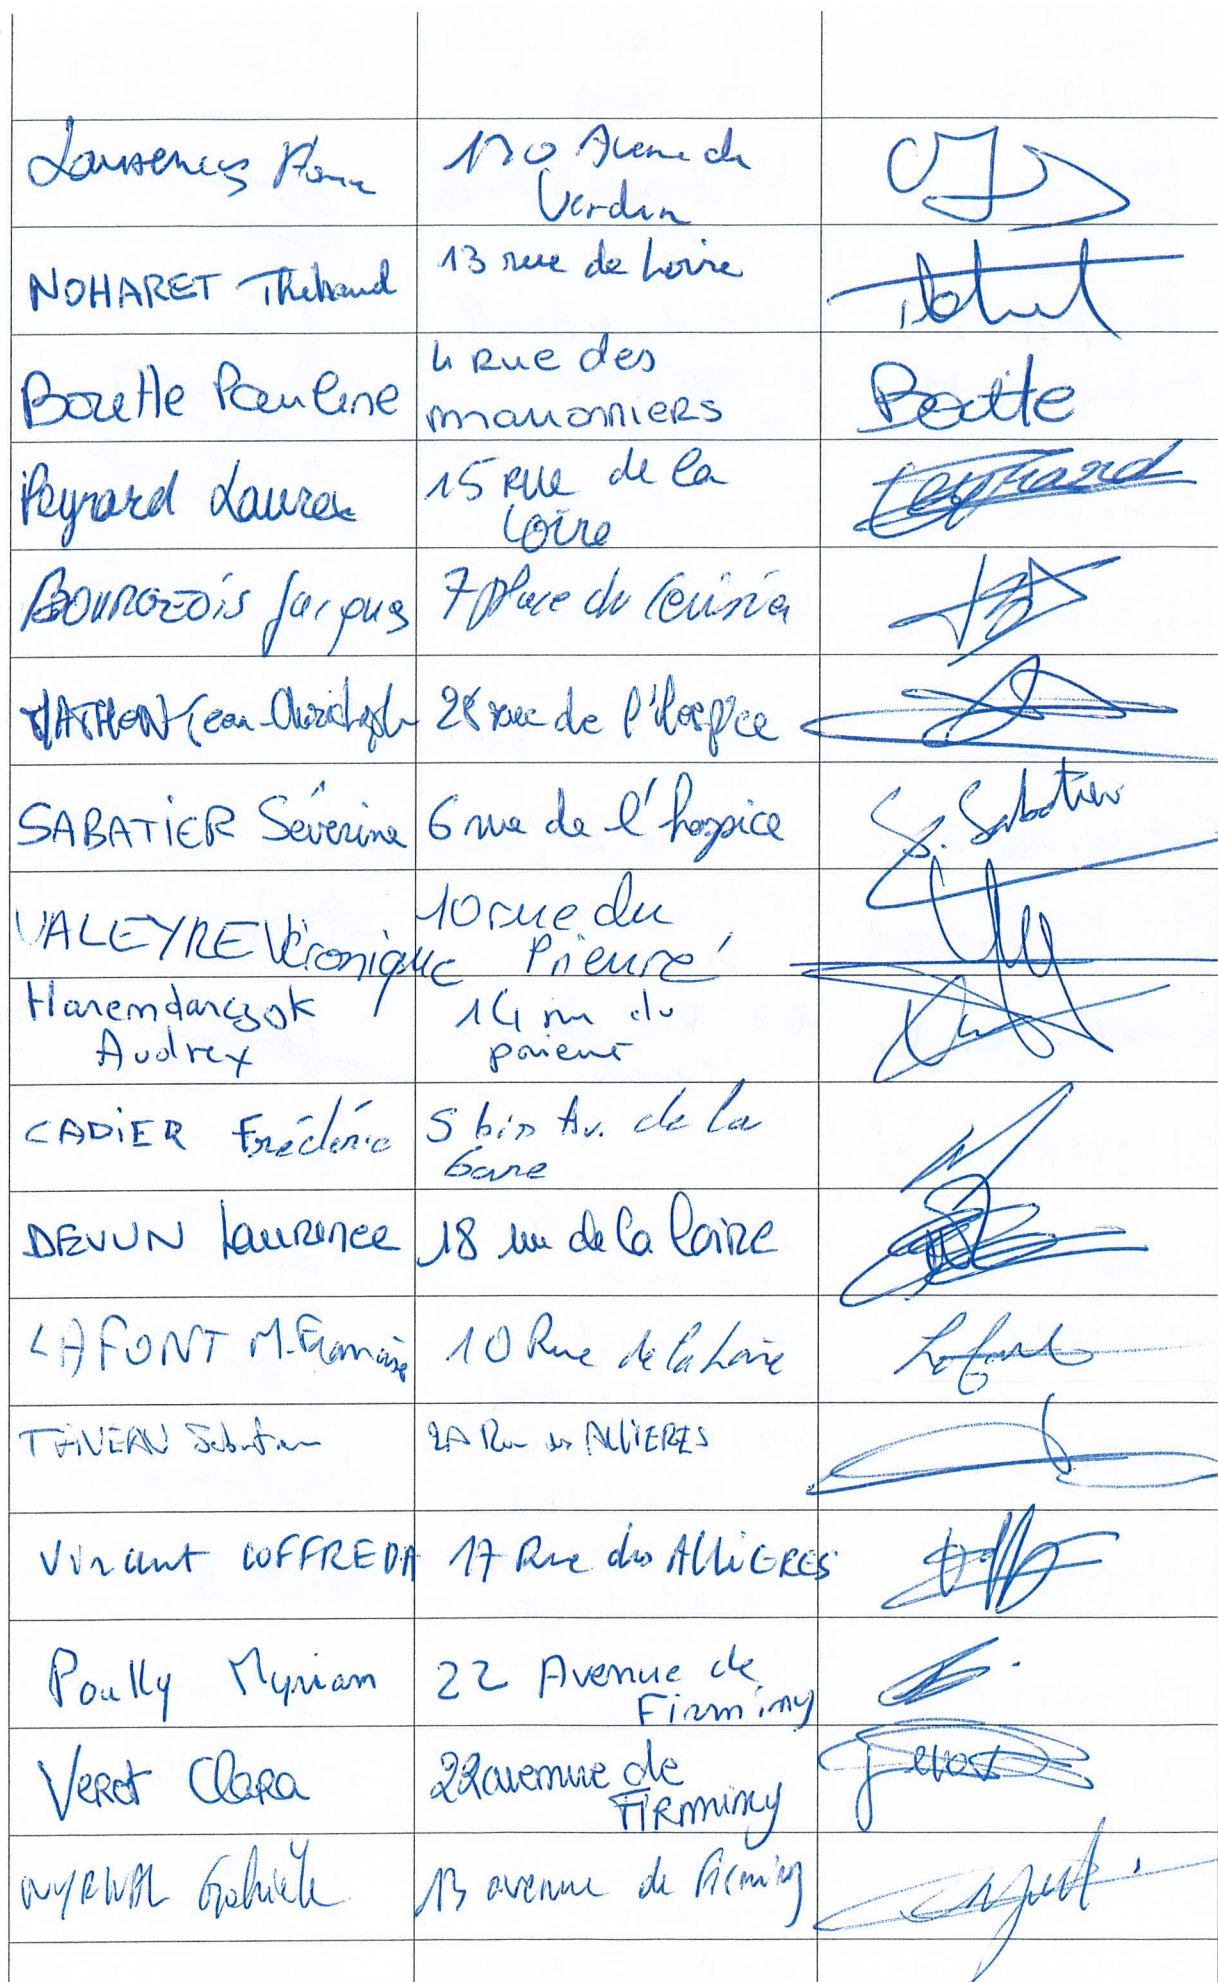 130 Avenue de
Verdun
NOHARET Thibaud
13 rue de Loire
Bouette Pauline
4 Rue des
marronniers
Peyrard Laura
15 rue de la
Loire
Peyrard
BOURGEOIS Jacques
7 place du
MATHON Jean-Christophe
28 rue de l'Hospice
SABATIER Séverine
6 rue de l'hospice
S. Sabatier
VALEYRE Véronique
10 rue du
Prieuré
Harendarczyk
Audrey
14 rue du
prieuré
CADIER Frédéric
5 bis Av. de la
Gare
DEVUN Laurence
18 rue de la Loire
LAFONT M.Françoise
10 Rue de la Loire
Lafont
Sébastien
Rue des ALLIERES
Vincent LOFFREDA
17 Rue des ALLIERES
Pouilly Myriam
22 Avenue de
Firminy
Verot Clara
22 avenue de
FIRMINY
Gabriele
13 avenue de Firminy